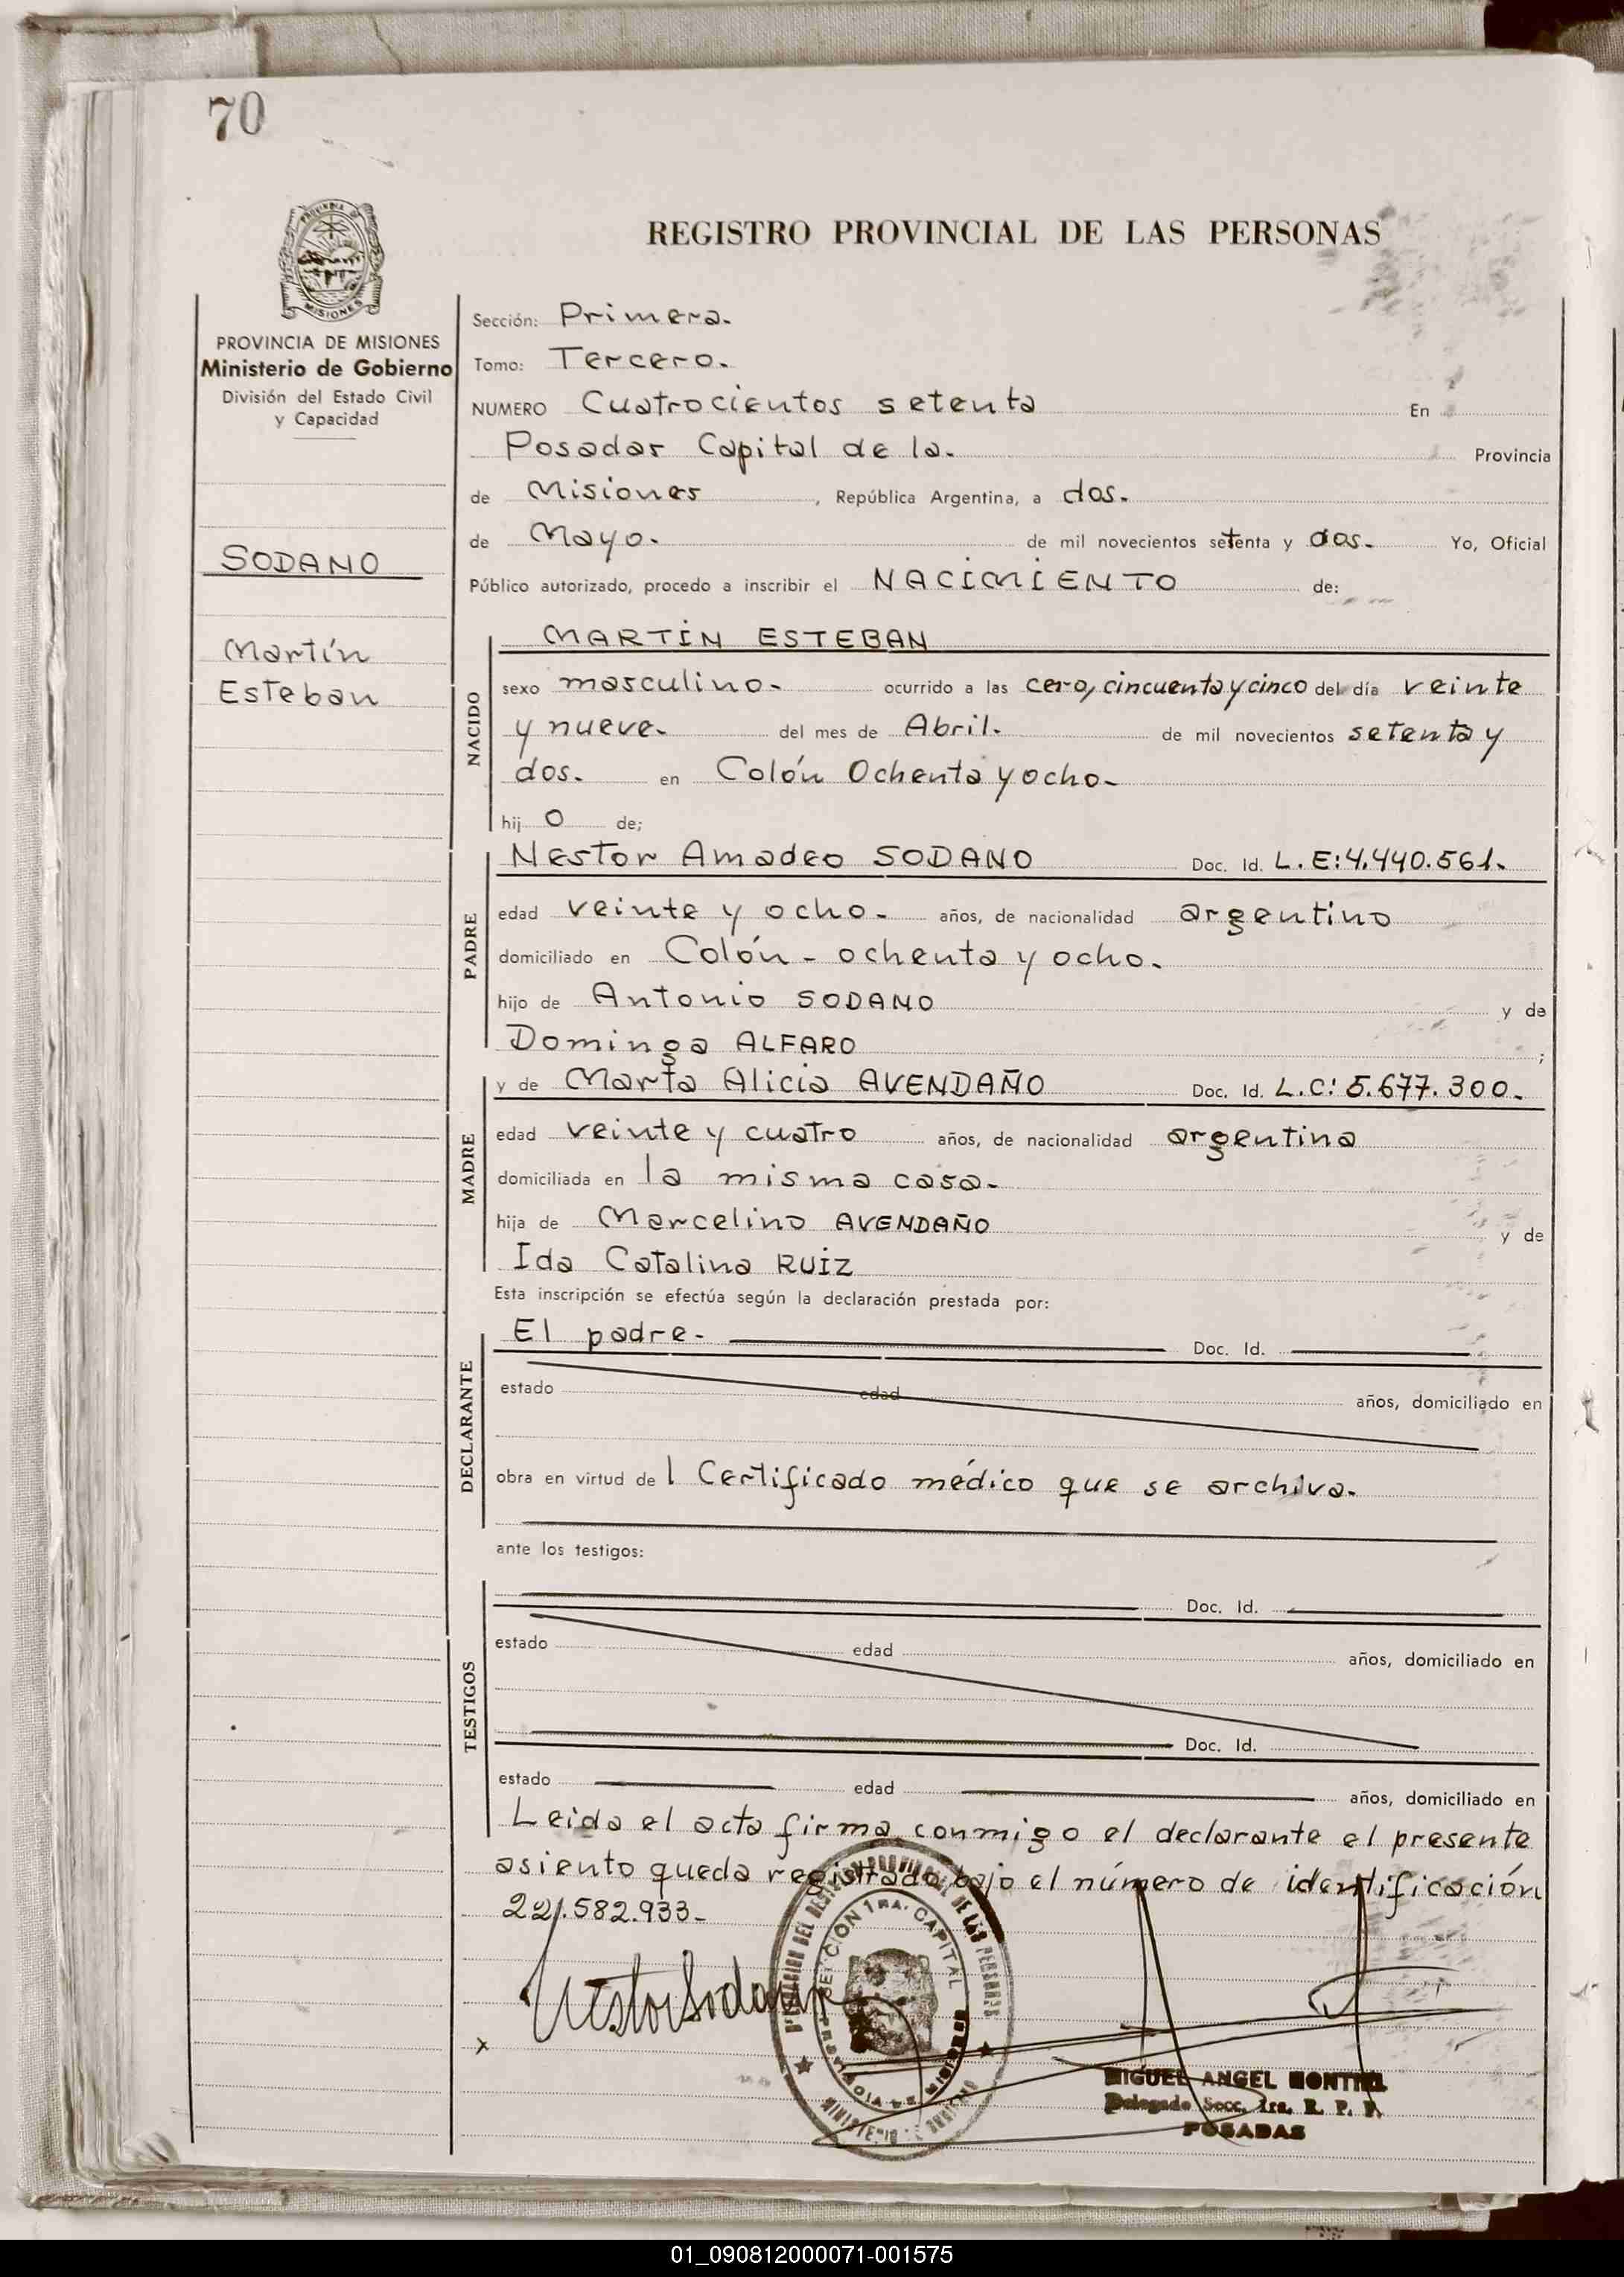 70
REGISTRO PROVINCIAL DE LAS PERSONAS
MISIONES
PROVINCIA DE MISIONES
Ministerio de Gobierno
División del Estado Civil
y Capacidad
SODANO
Martín
Esteban
Sección: Primera.
Tomo: Tercero.
NUMERO Cuatrocientos setenta En
Posadas Capital de la. Provincia
de Misiones, República Argentina, a dos.
de Mayo. de mil novecientos setenta y dos. Yo, Oficial
Público autorizado, procedo a inscribir el NACIMIENTO de:
NACIDO
MARTÍN ESTEBAN
sexo masculino. ocurrido a las cero, cincuenta y cinco del día veinte
y nueve. del mes de Abril. de mil novecientos setenta y
dos. en Colón Ochenta y ocho.
hij o de;
PADRE
Nestor Amadeo SODANO Doc. Id. L.E:4.440.561.
edad veinte y ocho. años, de nacionalidad argentino
domiciliado en Colón - ochenta y ocho.
hijo de Antonio SODANO y de
Dominga ALFARO ;
MADRE
y de Marta Alicia AVENDAÑO Doc. Id. L.C: 5.677.300.
edad veinte y cuatro años, de nacionalidad argentina
domiciliada en la misma casa.
hija de Marcelino AVENDAÑO y de
Ida Catalina RUIZ
Esta inscripción se efectúa según la declaración prestada por:
DECLARANTE
El padre. Doc. Id.
estado edad años, domiciliado en
obra en virtud de l Certificado médico que se archiva.
ante los testigos:
TESTIGOS
Doc. Id.
estado edad años, domiciliado en
Doc. Id.
estado edad años, domiciliado en
Leida el acta firma conmigo el declarante el presente
asiento queda registrado bajo el número de identificación
22.582.933.
Nestor Sodano
x
SECCION 1RA. CAPITAL
MIGUEL ANGEL MONTIEL
Delegado Secc. 1ra. R. P. P.
POSADAS
01_090812000071-001575